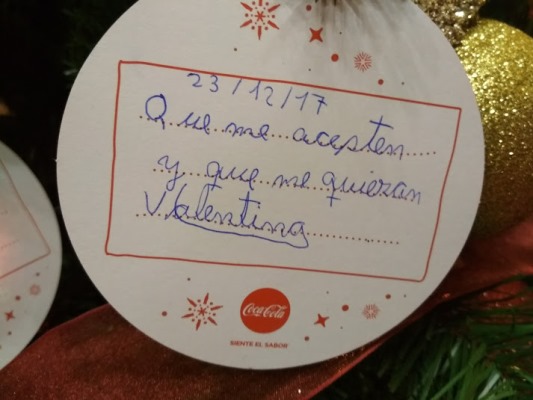 23/12/17
Que me acepten
y que me quieran
Valentina
Coca-Cola
SIENTE EL SABOR